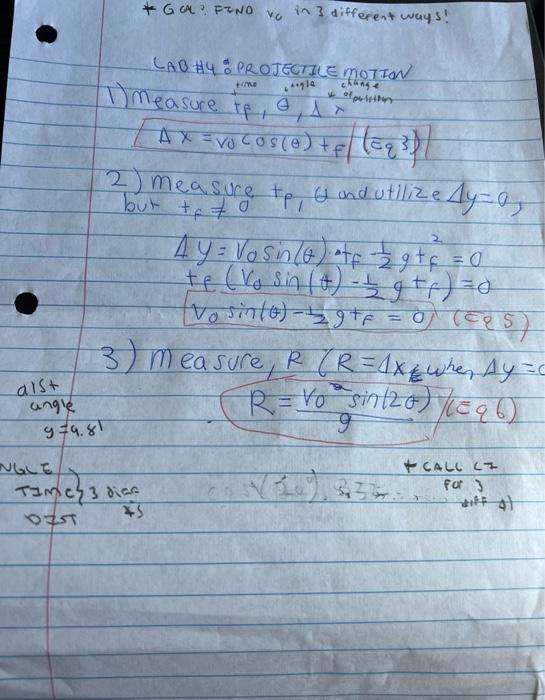 * GOAL: FIND v0 in 3 different ways!
LAB #4: PROJECTILE MOTION
time angle change of position
1) measure tf, θ, Δx
Δx = v0 cos(θ) tf (Eq 3)
2) measure tf, θ and utilize Δy=0,
but tf ≠ 0
Δy = v0 sin(θ)·tf - 1/2 g tf² = 0
tf (v0 sin(θ) - 1/2 g tf) = 0
v0 sin(θ) - 1/2 g tf = 0 (Eq 5)
3) measure, R (R = Δx when Δy=0
dist
angle
g=9.81
R = v0² sin(2θ) / g (Eq 6)
NGLE
TIME } 3 diff
DIST
* CALL
for 3
diff